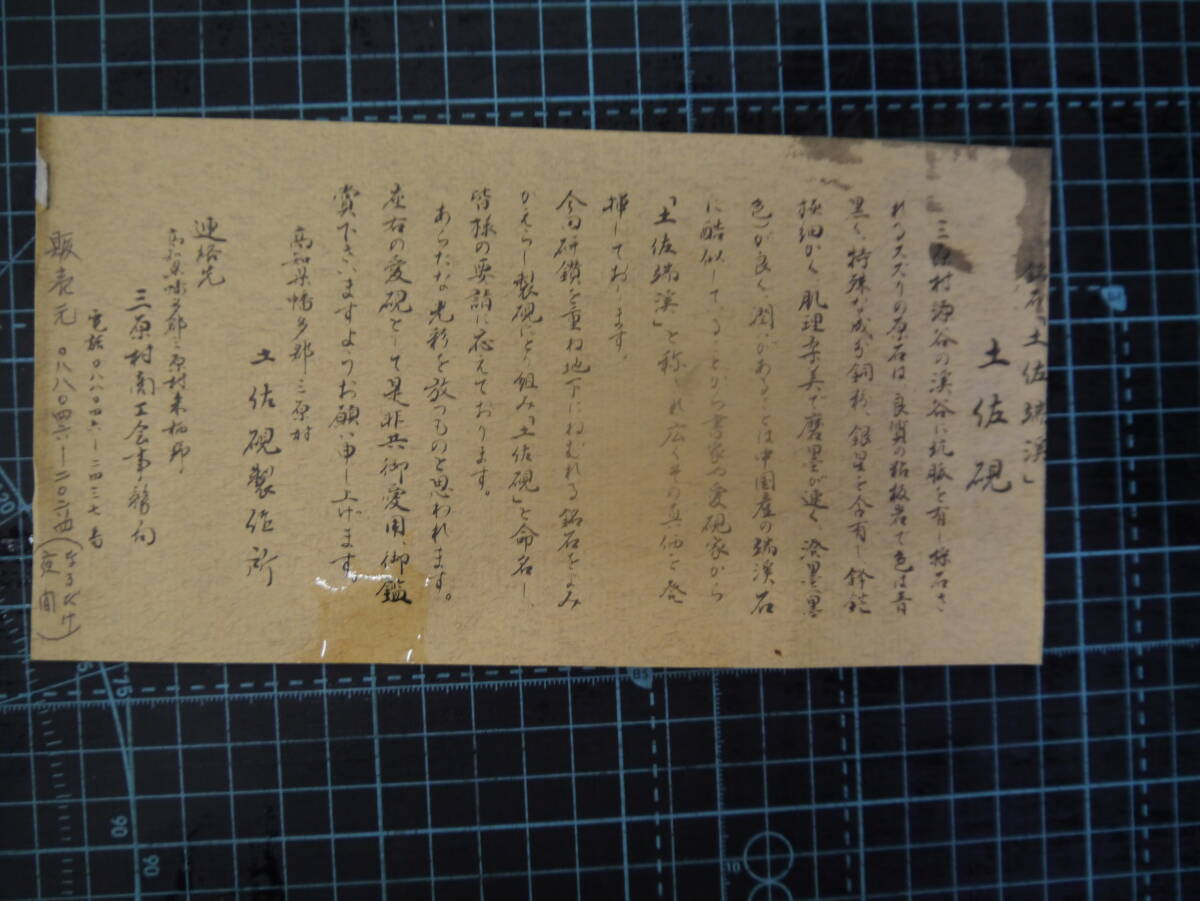 銘石「土佐端渓」
土佐硯
三原村源谷の渓谷に坑脈を有し採石さ
れるスズリの原石は、良質の粘板岩で色は青
黒く、特殊な成分銅粉、銀星を含有し鋒鋩
極細かく、肌理柔美で磨墨が速く、溌墨(墨
色)が良く、潤があることは中国産の端渓石
に酷似していることから書家や愛硯家から
「土佐端渓」と称され広くその真価を発
揮しております。
今回研鑽を重ね地下にねむれる銘石をよみ
がえらし製硯にとり組み「土佐硯」と命名し、
皆様の要請に応えております。
あらたな光彩を放つものと思われます。
座右の愛硯として是非共御愛用、御鑑
賞下さいますようお願い申し上げます。
高知県幡多郡三原村
土佐硯製作所
連絡先
高知県幡多郡三原村来栖野
三原村商工会事務局
電話〇八八〇四六―二四三七号
販売元 〇八八〇四六―二〇二四(なるだけ夜間)